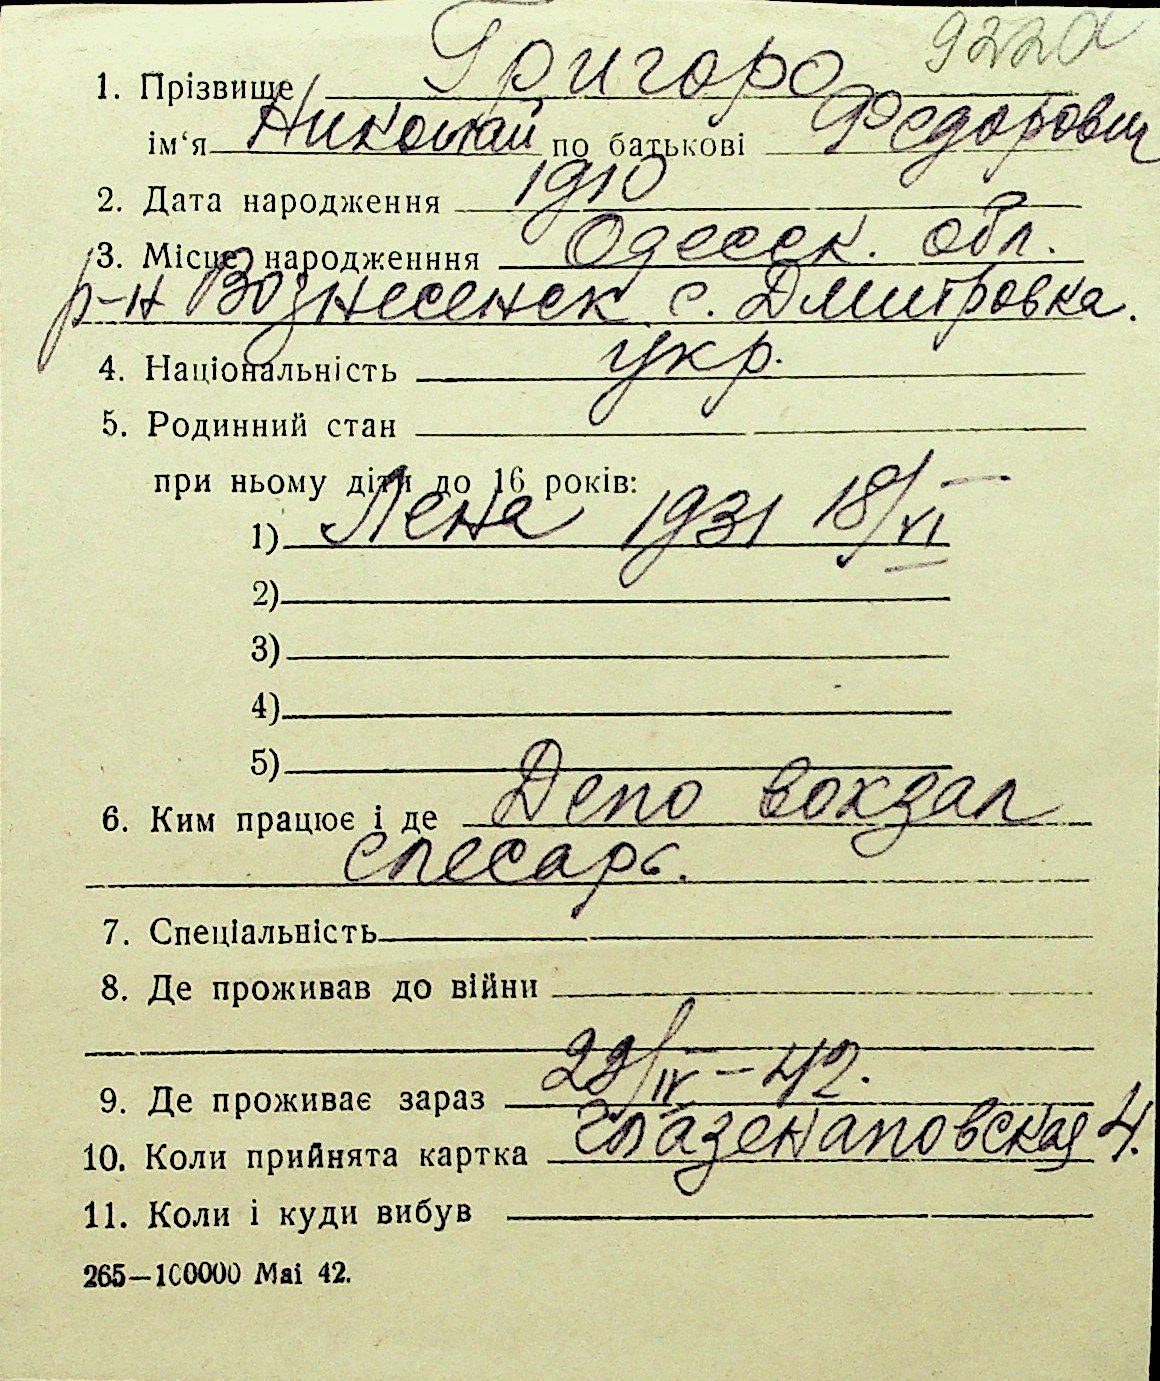 922а
1. Прізвище Григоро
ім‘я Николай по батькові Федорович
2. Дата народження 1910
3. Місце народженння Одесск. обл.
р-н Вознесенск с. Дмитровка.
4. Національність укр.
5. Родинний стан
при ньому діти до 16 років:
1) Лена 1931 18/VI
2)
3)
4)
5)
6. Ким працює і де Депо вокзал
слесарь.
7. Спеціальність
8. Де проживав до війни
9. Де проживає зараз 29/IV-42.
10. Коли прийнята картка Глазенаповская 4.
11. Коли і куди вибув
265—100000 Mai 42.